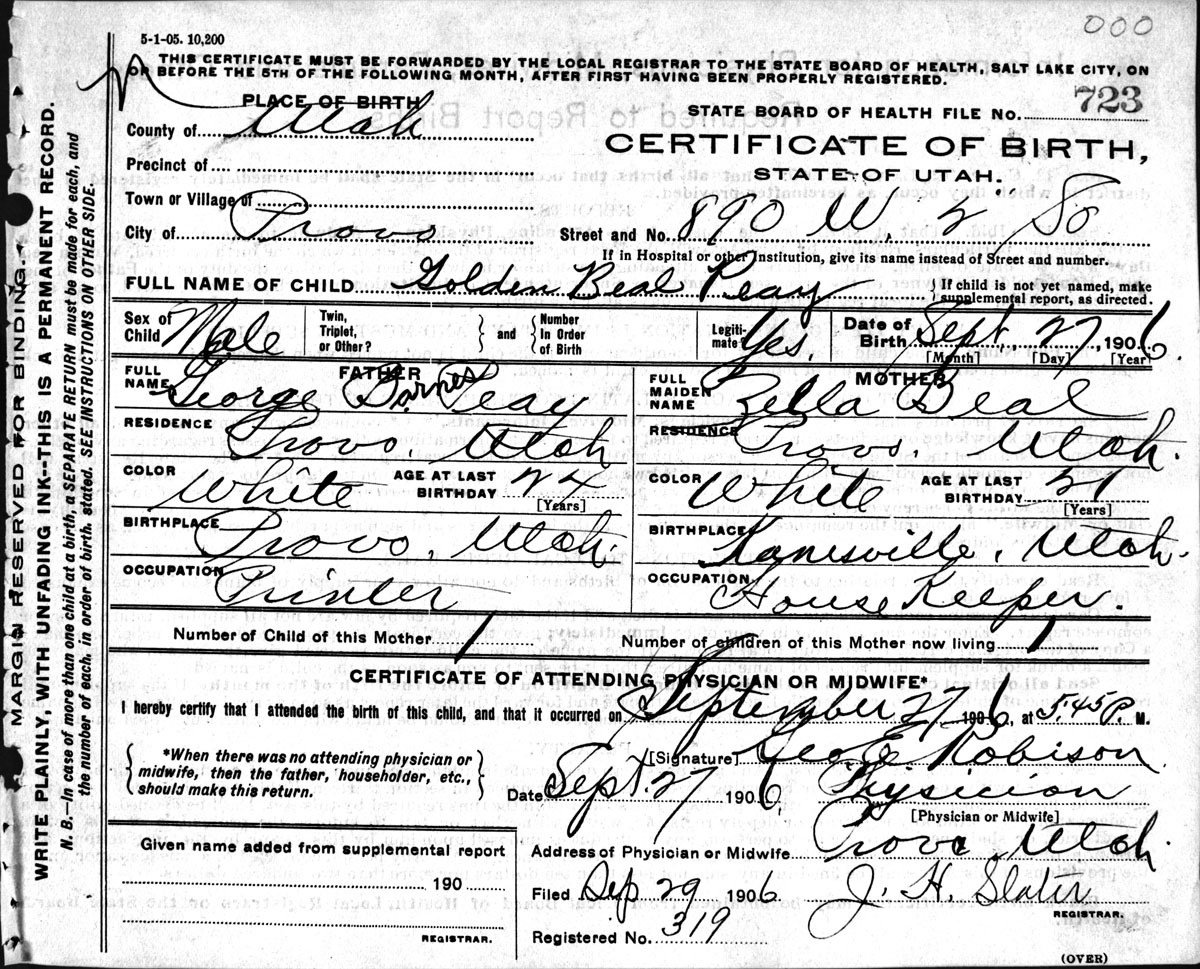 000
5-1-05. 10,200
THIS CERTIFICATE MUST BE FORWARDED BY THE LOCAL REGISTRAR TO THE STATE BOARD OF HEALTH, SALT LAKE CITY, ON
OR BEFORE THE 5TH OF THE FOLLOWING MONTH, AFTER FIRST HAVING BEEN PROPERLY REGISTERED.
PLACE OF BIRTH
STATE BOARD OF HEALTH FILE No. 723
County of Utah
CERTIFICATE OF BIRTH,
Precinct of
STATE OF UTAH.
Town or Village of
City of Provo Street and No. 890 W. 2 So
If in Hospital or other Institution, give its name instead of Street and number.
FULL NAME OF CHILD Golden Beal Peay { If child is not yet named, make supplemental report, as directed.
Sex of Child Male Twin, Triplet, or Other? } and { Number In Order of Birth Legitimate Yes. Date of Birth Sept., 27, 1906.
[Month] [Day] [Year]
FATHER
FULL NAME George Barnes Peay
RESIDENCE Provo, Utah
COLOR White AGE AT LAST BIRTHDAY 24
[Years]
BIRTHPLACE Provo, Utah.
OCCUPATION Printer
MOTHER
FULL MAIDEN NAME Zella Beal
RESIDENCE Provo, Utah.
COLOR White AGE AT LAST BIRTHDAY 21
[Years]
BIRTHPLACE Kanesville, Utah.
OCCUPATION House Keeper.
Number of Child of this Mother 1 Number of children of this Mother now living 1
CERTIFICATE OF ATTENDING PHYSICIAN OR MIDWIFE*
I hereby certify that I attended the birth of this child, and that it occurred on September 27, 1906, at 5:45 P. M.
{ *When there was no attending physician or midwife, then the father, householder, etc., should make this return. }
[Signature] Geo E Robison
Date Sept. 27 1906, Physician
[Physician or Midwife]
Address of Physician or Midwife Provo, Utah.
Given name added from supplemental report
190
REGISTRAR.
Filed Sep 29 1906 J. H. Slater
REGISTRAR.
Registered No. 319
(OVER)
MARGIN RESERVED FOR BINDING.
WRITE PLAINLY, WITH UNFADING INK--THIS IS A PERMANENT RECORD.
N. B.--In case of more than one child at a birth, a SEPARATE RETURN must be made for each, and
the number of each, in order of birth, stated. SEE INSTRUCTIONS ON OTHER SIDE.